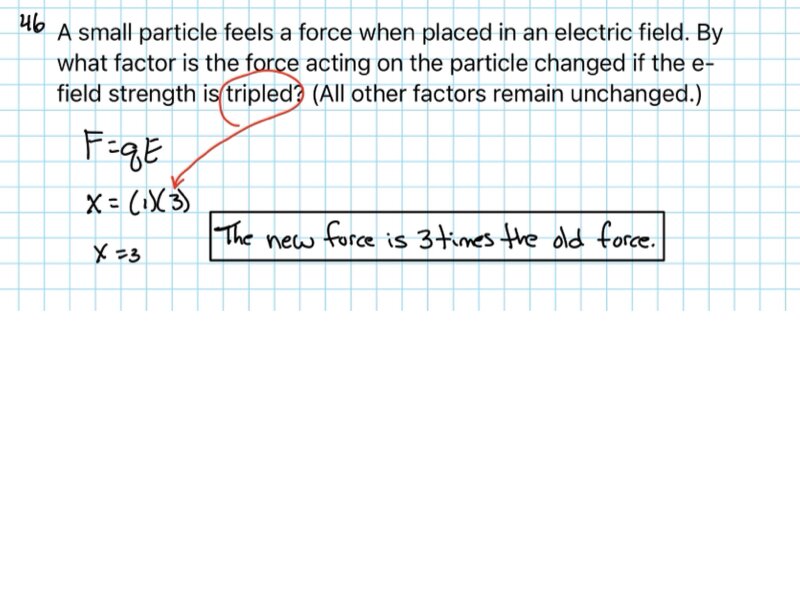 46 A small particle feels a force when placed in an electric field. By
what factor is the force acting on the particle changed if the e-
field strength is tripled? (All other factors remain unchanged.)
F=qE
x = (1)(3)
x = 3
The new force is 3 times the old force.